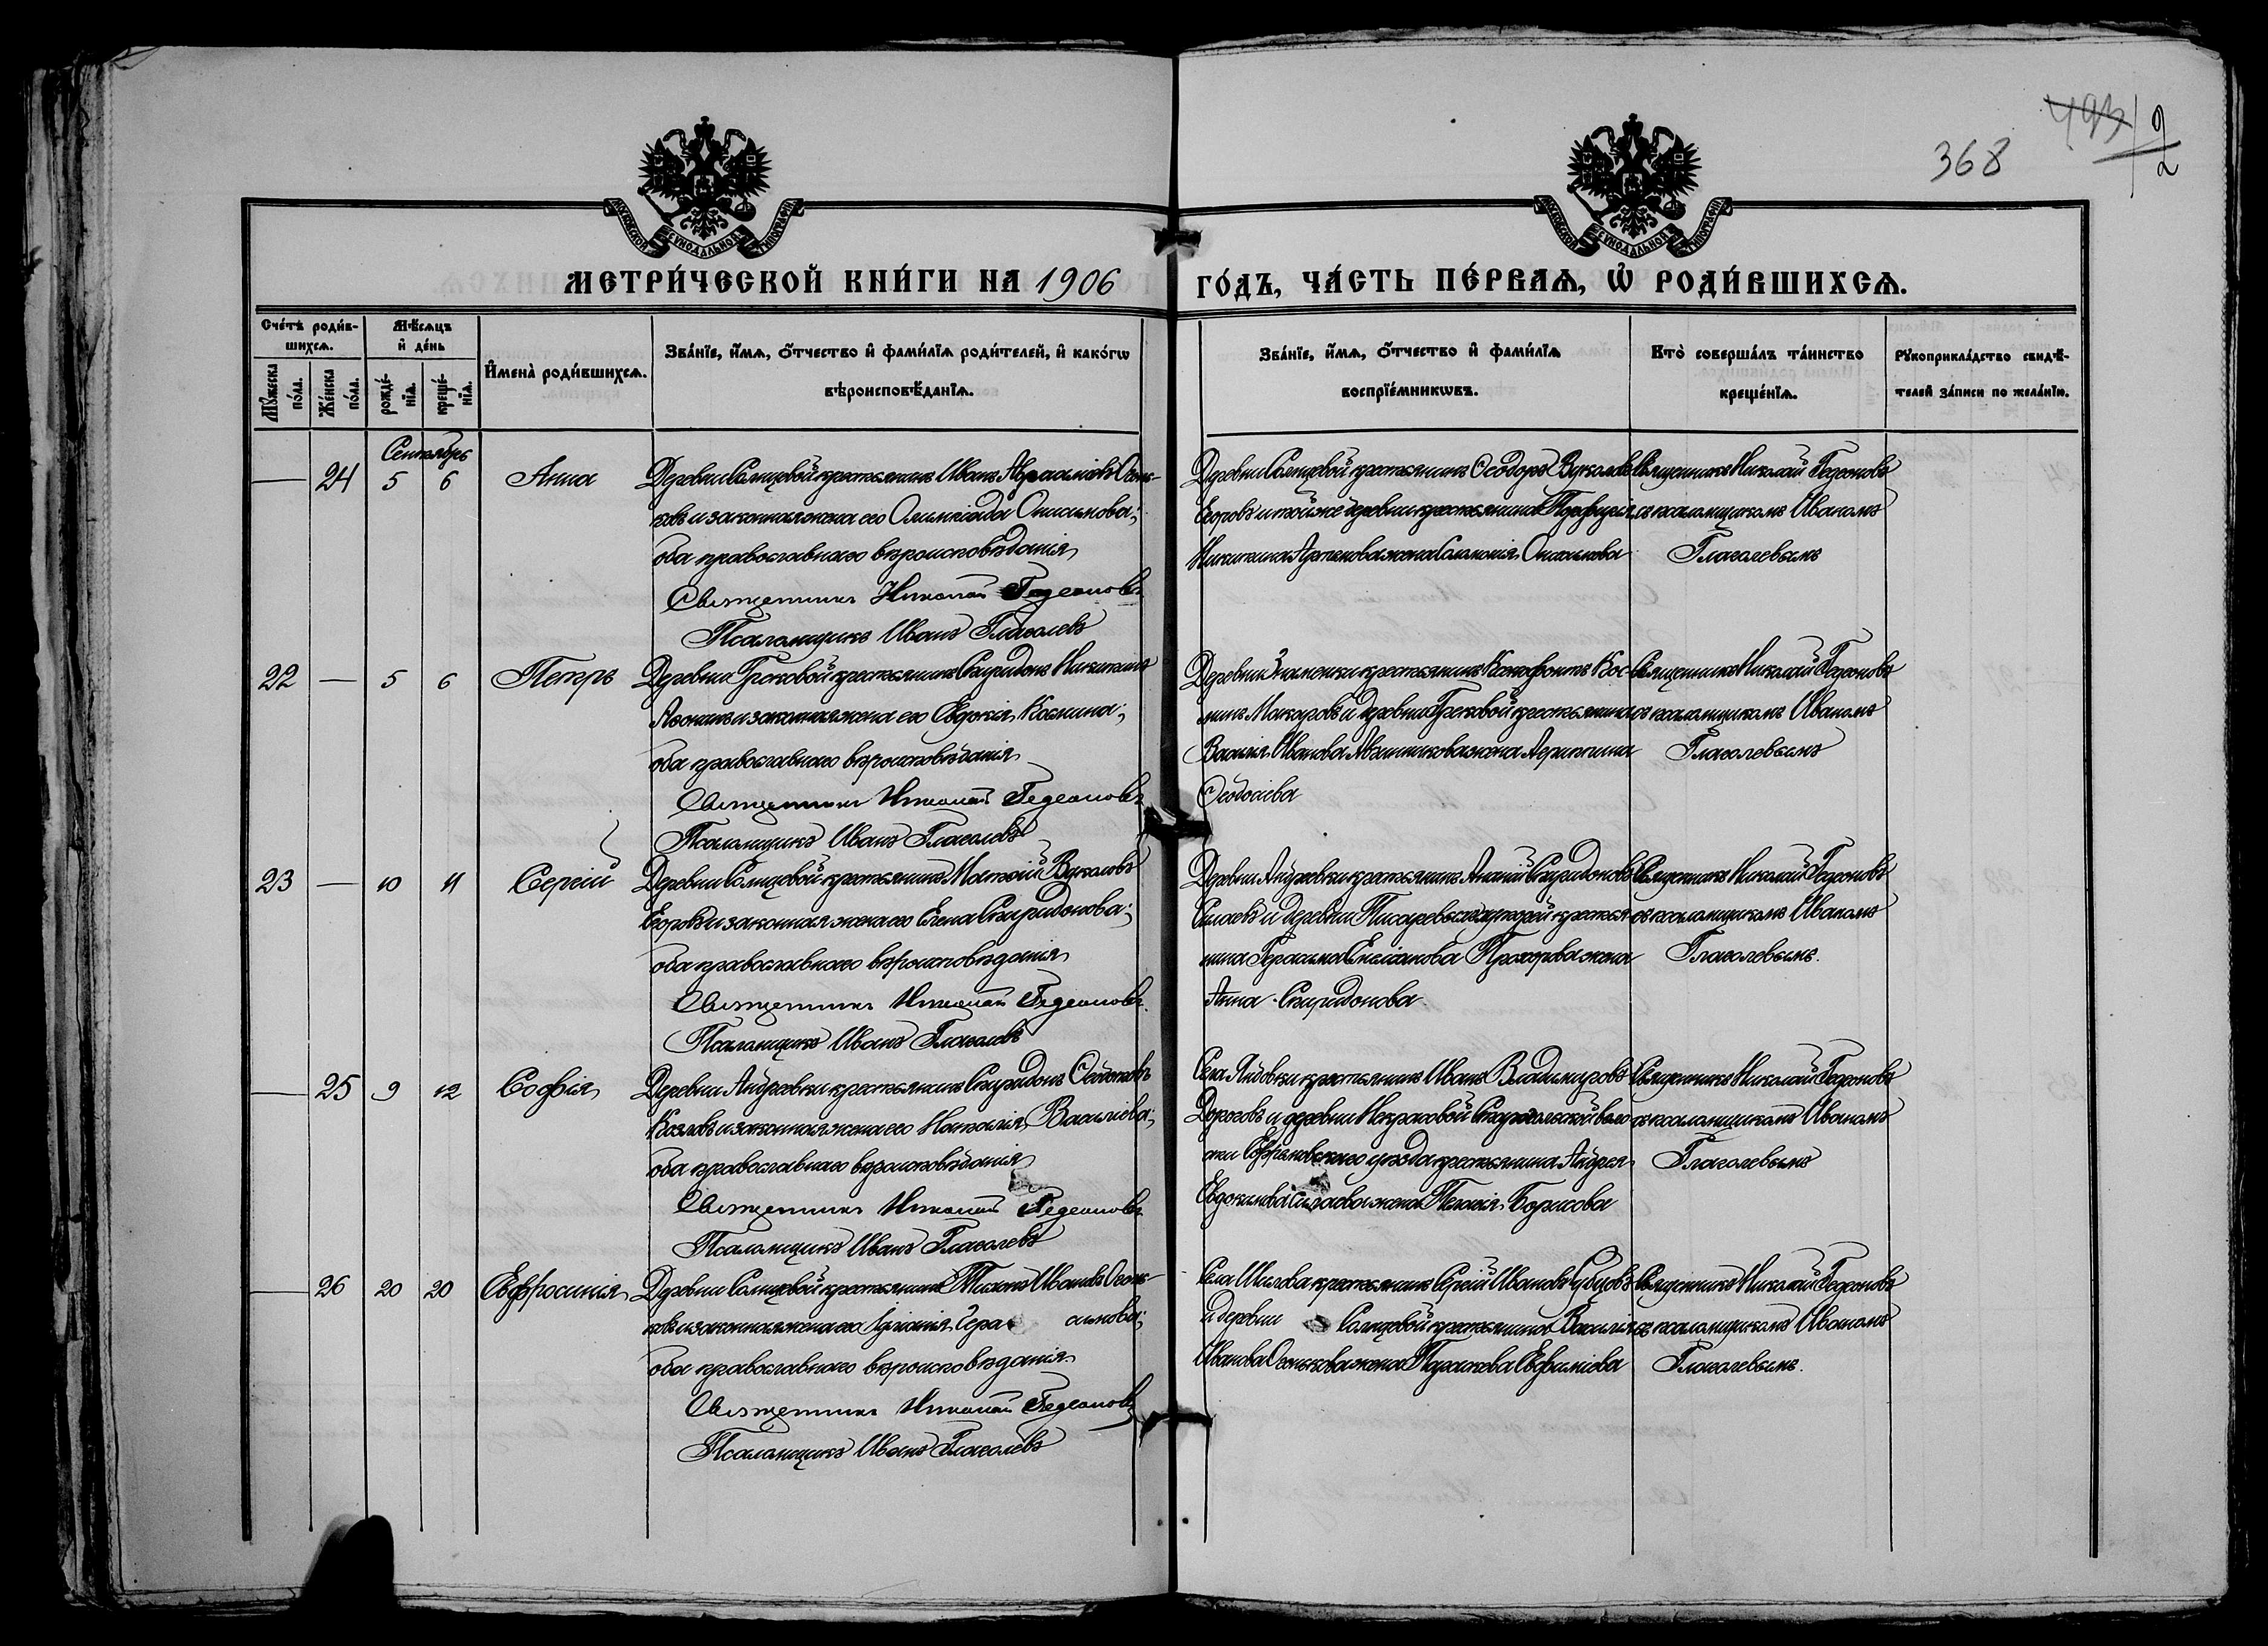 368
493
МОСКОВСКОЙ СѴНОДАЛЬНОЙ ТИПОГРАФІИ
МОСКОВСКОЙ СѴНОДАЛЬНОЙ ТИПОГРАФІИ
МЕТРИ́ЧЕСКОЙ КНИ́ГИ НА 1906 ГО́ДЪ, ЧА́СТЬ ПЕ́РВАѦ, Ѡ҆ РОДИ́ВШИХСѦ.
Сче́тъ роди́в-
шихсѧ.
Мꙋ́жеска по́ла.
Же́нска по́ла.
Мѣ́сѧцъ
и҆ де́нь
рожде́-
нїѧ.
креще́-
нїѧ.
И҆мена̀ роди́вшихсѧ.
Зва́нїе, и҆́мѧ, ѻ҆́тчество и҆ фами́лїѧ роди́телей, и҆ како́гѡ
вѣроисповѣ́данїѧ.
Зва́нїе, и҆́мѧ, ѻ҆́тчество и҆ фами́лїѧ
воспрїе́мникѡвъ.
Кто̀ соверша́лъ та́инство
креще́нїѧ.
Рꙋкоприкла́дство свидѣ́-
телей за́писи по жела́нїю.
Сентябрь
— 24 5 6 Анна
Деревни Солнцевой крестьянинъ Иванъ Аврааміевъ Огонь-
ковъ и законная жена его Олимпіада Онисимова;
оба православнаго вѣроисповѣданія
Священникъ Николай Гедеоновъ
Псаломщикъ Иванъ Глаголевъ
Деревни Солнцевой крестьянинъ Ѳеодоръ Вуколовъ
Егоровъ и той же деревни крестьянина Порфирія
Никитина Артемова жена Соломонія Онисимова
Священникъ Николай Гедеоновъ
съ псаломщикомъ Иваномъ
Глаголевымъ
22 — 5 6 Петръ
Деревни Грековой крестьянинъ Спиридонъ Никитинъ
Аѳонинъ и законная жена его Евдокія Космина;
оба православнаго вѣроисповѣданія
Священникъ Николай Гедеоновъ
Псаломщикъ Иванъ Глаголевъ
Деревни Знаменки крестьянинъ Ксенофонтъ Кос-
минъ Макаровъ и деревни Грековой крестьянина
Василія Иванова жена Агриппина
Ѳеодосіева
Священникъ Николай Гедеоновъ
съ псаломщикомъ Иваномъ
Глаголевымъ
23 — 10 11 Сергій
Деревни Солнцевой крестьянинъ Матѳій Вуколовъ
Егоровъ и законная жена его Елена Спиридонова;
оба православнаго вѣроисповѣданія
Священникъ Николай Гедеоновъ
Псаломщикъ Иванъ Глаголевъ
Деревни Андреевки крестьянинъ Ананій Спиридоновъ
и деревни крестья-
нина Герасима Прохорова жена
Анна Спиридонова
Священникъ Николай Гедеоновъ
съ псаломщикомъ Иваномъ
Глаголевымъ.
— 25 9 12 Софія
Деревни Андреевки крестьянинъ Спиридонъ
Козловъ и законная жена его Наталія Василіева;
оба православнаго вѣроисповѣданія
Священникъ Николай Гедеоновъ
Псаломщикъ Иванъ Глаголевъ
Села крестьянинъ Иванъ Владиміровъ
Дороговъ и деревни Некрасовой воло-
сти Ефремовскаго уѣзда крестьянина Андрея
Евдокимова жена Пелагія Борисова
Священникъ Николай Гедеоновъ
съ псаломщикомъ Иваномъ
Глаголевымъ
— 26 20 20 Евфросинія
Деревни Солнцевой крестьянинъ Тихонъ Ивановъ Огонь-
ковъ и законная жена его Гера симова;
оба православнаго вѣроисповѣданія
Священникъ Николай Гедеоновъ
Псаломщикъ Иванъ Глаголевъ
Села Шилова крестьянинъ Сергій Ивановъ Губцовъ
и деревни Солнцевой крестьянина Василія
Иванова Огонькова жена Параскева Евфиміева
Священникъ Николай Гедеоновъ
съ псаломщикомъ Иваномъ
Глаголевымъ.